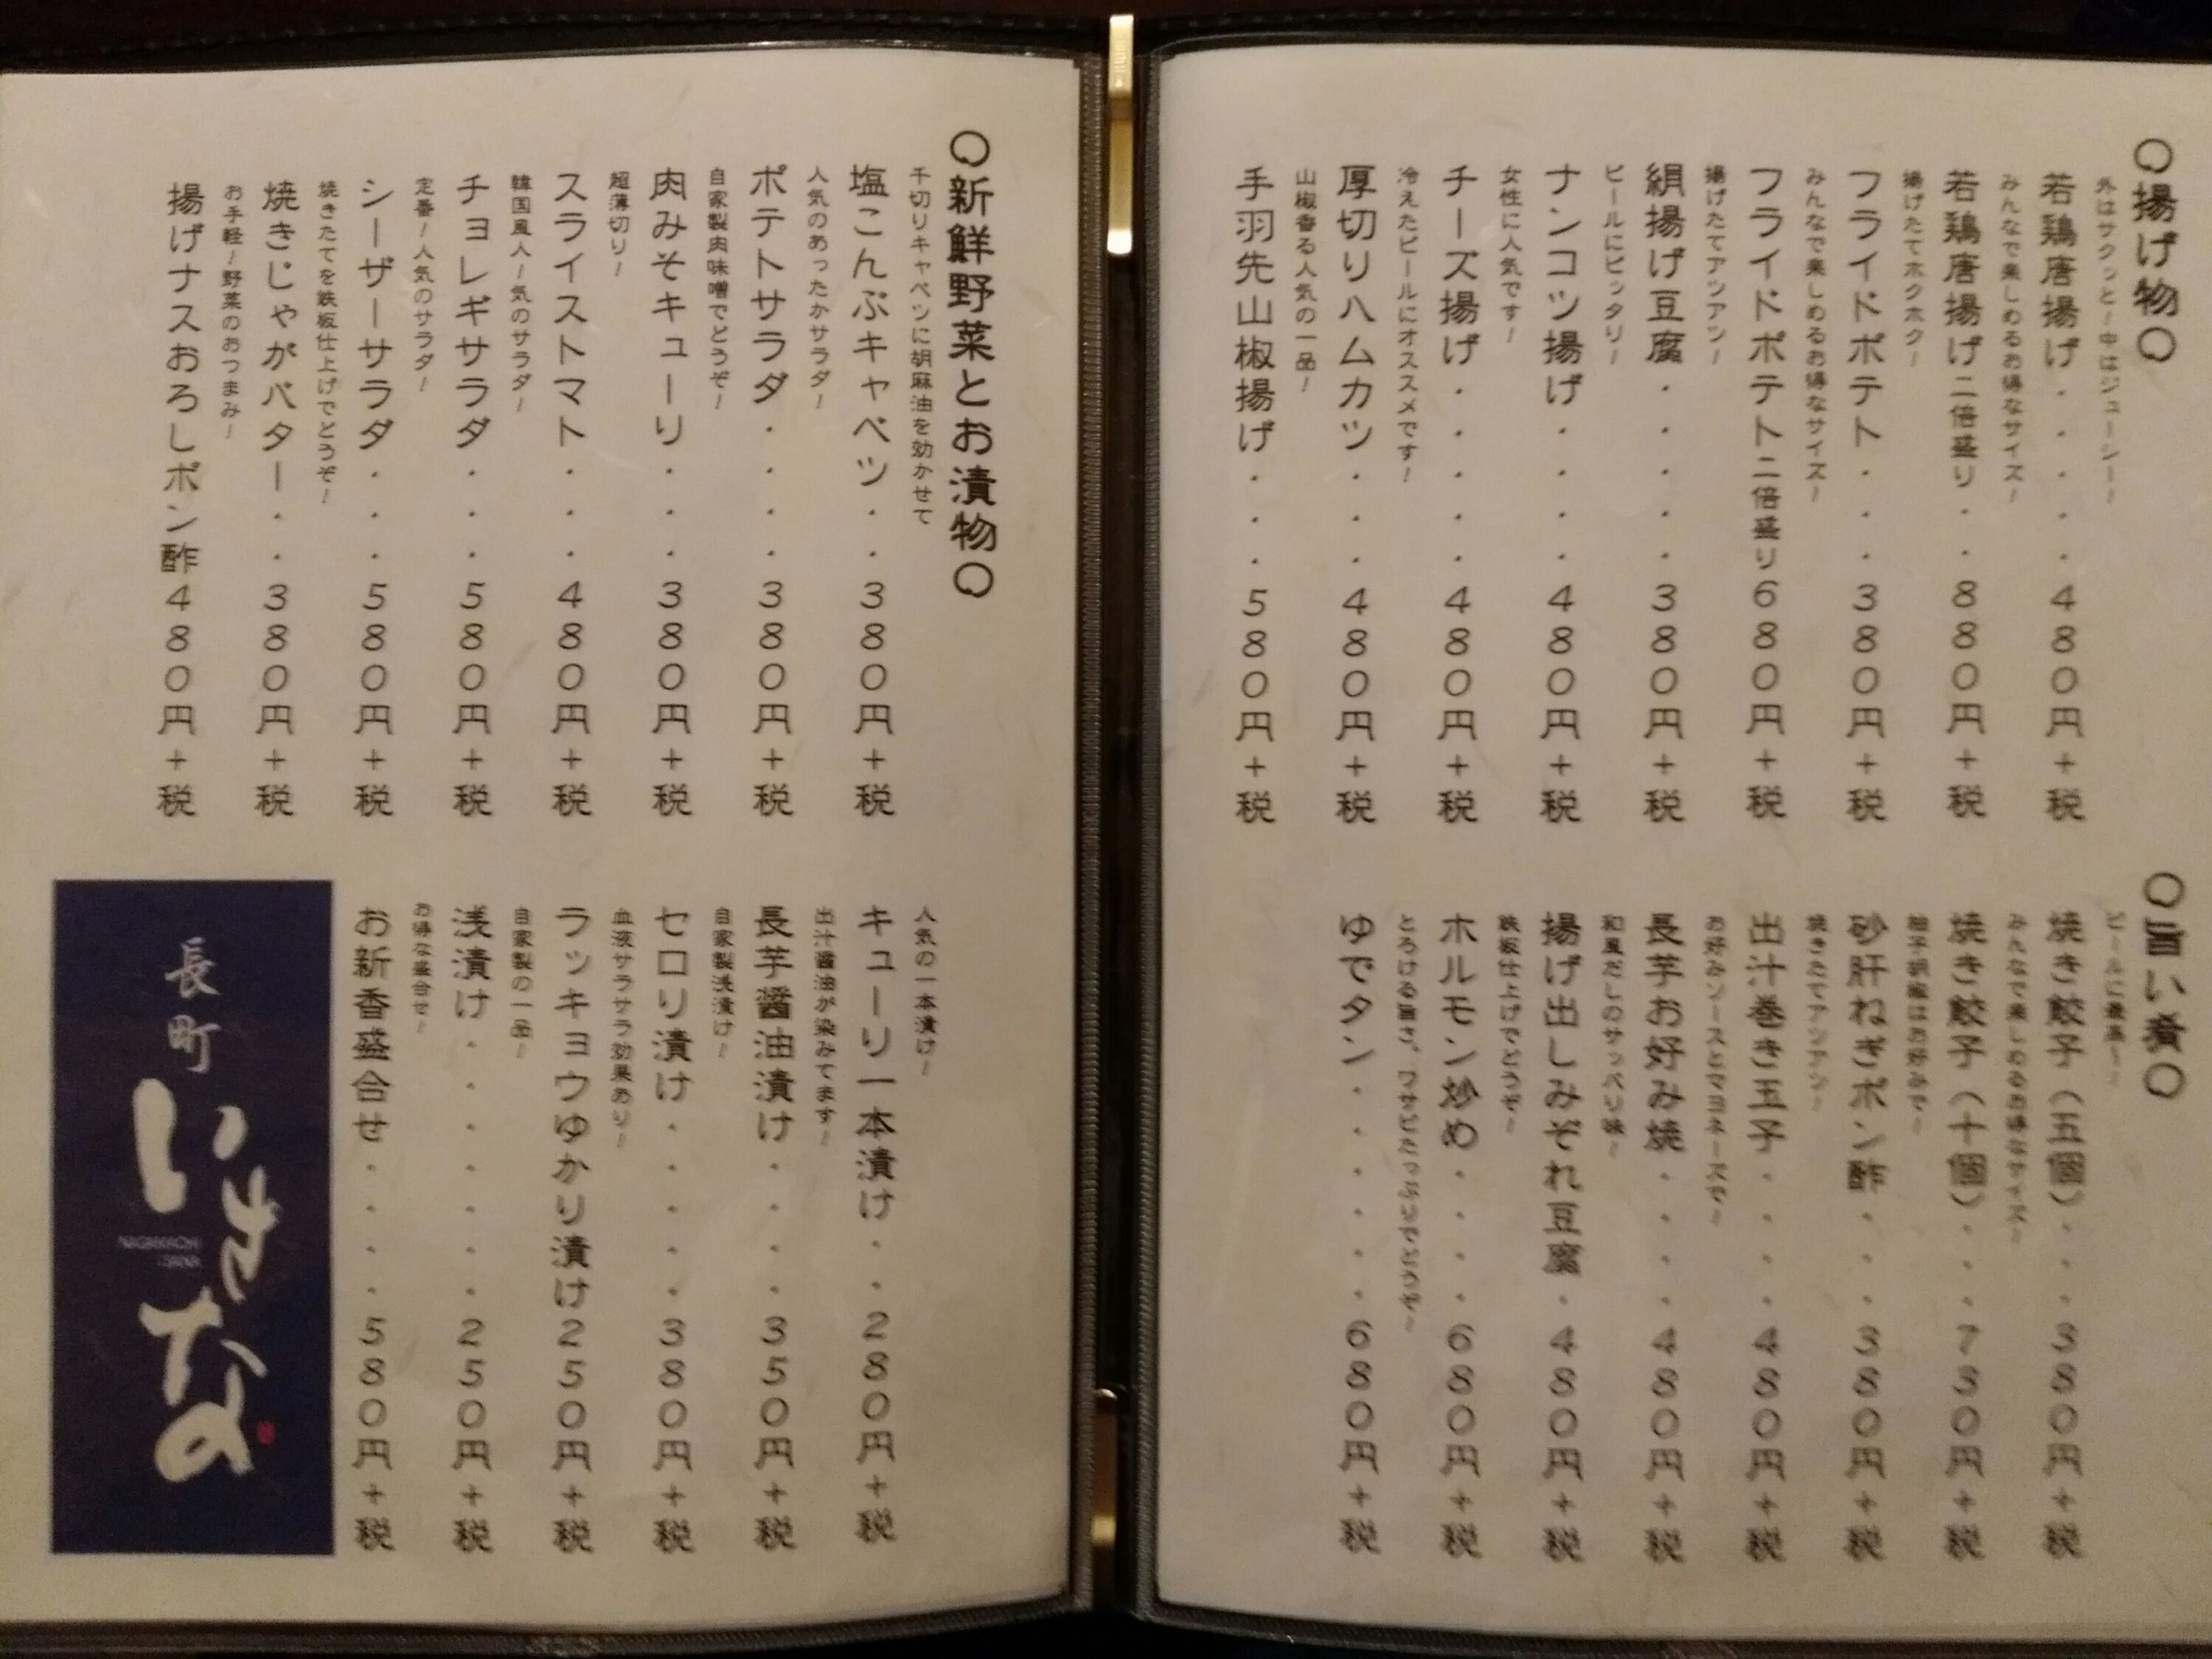 〇揚げ物〇
外はサクっと！中はジューシー！
若鶏唐揚げ・・・・・480円+税
みんなで楽しめるお得なサイズ！
若鶏唐揚げ二倍盛り・・880円+税
揚げたてホクホク！
フライドポテト・・・380円+税
みんなで楽しめるお得なサイズ！
フライドポテト二倍盛り680円+税
揚げたてアツアツ！
絹揚げ豆腐・・・・・380円+税
ビールにピッタリ！
ナンコツ揚げ・・・・480円+税
女性に人気です！
チーズ揚げ・・・・・480円+税
冷えたビールにオススメです！
厚切りハムカツ・・・480円+税
山椒香る人気の一品！
手羽先山椒揚げ・・・580円+税
〇旨い肴〇
ビールに最高！
焼き餃子（五個）・・・380円+税
みんなで楽しめるお得なサイズ！
焼き餃子（十個）・・・730円+税
柚子胡椒はお好みで！
砂肝ねぎポン酢・・・380円+税
焼きたてアツアツ！
出汁巻き玉子・・・・480円+税
お好みソースとマヨネーズで！
長芋お好み焼・・・・480円+税
和風だしのサッパリ味！
揚げ出しみぞれ豆腐・480円+税
鉄板仕上げでどうぞ！
ホルモン炒め・・・・680円+税
とろける旨さ、ワサビたっぷりでどうぞ！
ゆでタン・・・・・・680円+税
〇新鮮野菜とお漬物〇
千切りキャベツに胡麻油を効かせて
塩こんぶキャベツ・・380円+税
人気のあったかサラダ！
ポテトサラダ・・・・380円+税
自家製肉味噌でどうぞ！
肉みそキューリ・・・380円+税
超薄切り！
スライストマト・・・480円+税
韓国風人！気のサラダ！
チョレギサラダ・・・580円+税
定番！人気のサラダ！
シーザーサラダ・・・580円+税
焼きたてを鉄板仕上げでどうぞ！
焼きじゃがバター・・380円+税
お手軽！野菜のおつまみ！
揚げナスおろしポン酢480円+税
人気の一本漬け！
キューリ一本漬け・・280円+税
出汁醤油が染みてます！
長芋醤油漬け・・・・350円+税
自家製浅漬け！
セロリ漬け・・・・・380円+税
血液サラサラ効果あり！
ラッキョウゆかり漬け250円+税
自家製の一品！
浅漬け・・・・・・・250円+税
お得な盛合せ！
お新香盛合せ・・・・580円+税
長町
いさなの